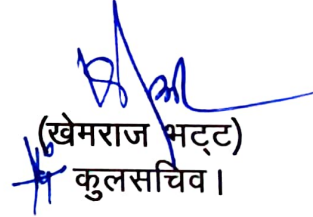 (खेमराज भट्ट)
कुलसचिव।